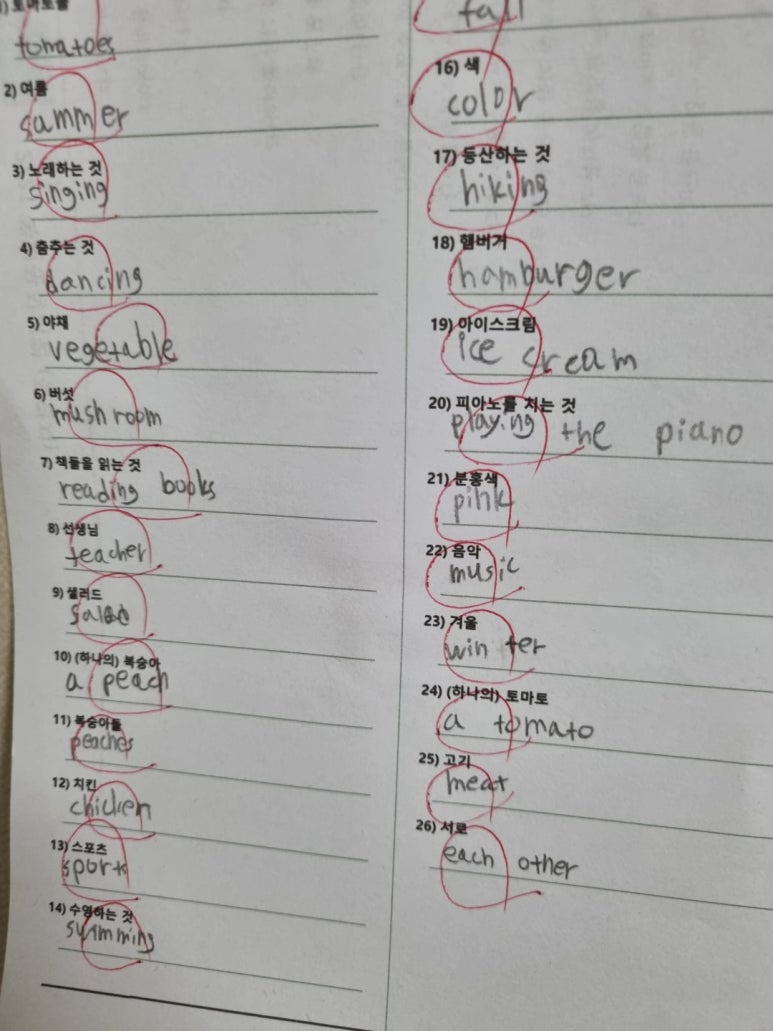 1) 토마토들
tomatoes
2) 여름
sammer
3) 노래하는 것
singing
4) 춤추는 것
dancing
5) 야채
vegetable
6) 버섯
mushroom
7) 책들을 읽는 것
reading books
8) 선생님
teacher
9) 샐러드
salad
10) (하나의) 복숭아
a peach
11) 복숭아들
peaches
12) 치킨
chicken
13) 스포츠
sports
14) 수영하는 것
swimming
fall
16) 색
color
17) 등산하는 것
hiking
18) 햄버거
hamburger
19) 아이스크림
ice cream
20) 피아노를 치는 것
playing the piano
21) 분홍색
pink
22) 음악
music
23) 겨울
winter
24) (하나의) 토마토
a tomato
25) 고기
meat
26) 서로
each other